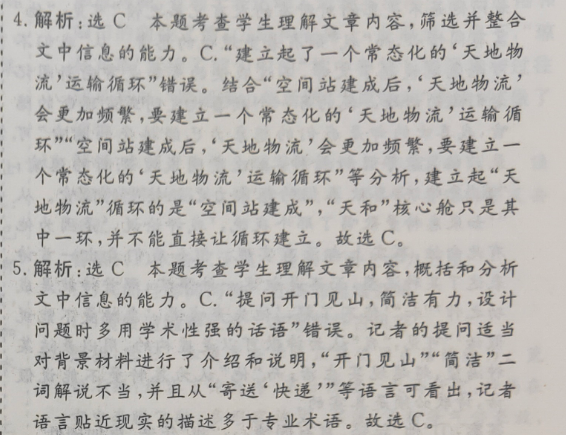 4. 解析:选 C　本题考查学生理解文章内容,筛选并整合
文中信息的能力。C.“建立起了一个常态化的‘天地物
流’运输循环”错误。结合“空间站建成后,‘天地物流’
会更加频繁,要建立一个常态化的‘天地物流’运输循
环”“空间站建成后,‘天地物流’会更加频繁,要建立一
个常态化的‘天地物流’运输循环”等分析,建立起“天
地物流”循环的是“空间站建成”,“天和”核心舱只是其
中一环,并不能直接让循环建立。故选 C。
5. 解析:选 C　本题考查学生理解文章内容,概括和分析
文中信息的能力。C.“提问开门见山,简洁有力,设计
问题时多用学术性强的话语”错误。记者的提问适当
对背景材料进行了介绍和说明,“开门见山”“简洁”二
词解说不当,并且从“寄送‘快递’”等语言可看出,记者
语言贴近现实的描述多于专业术语。故选 C。